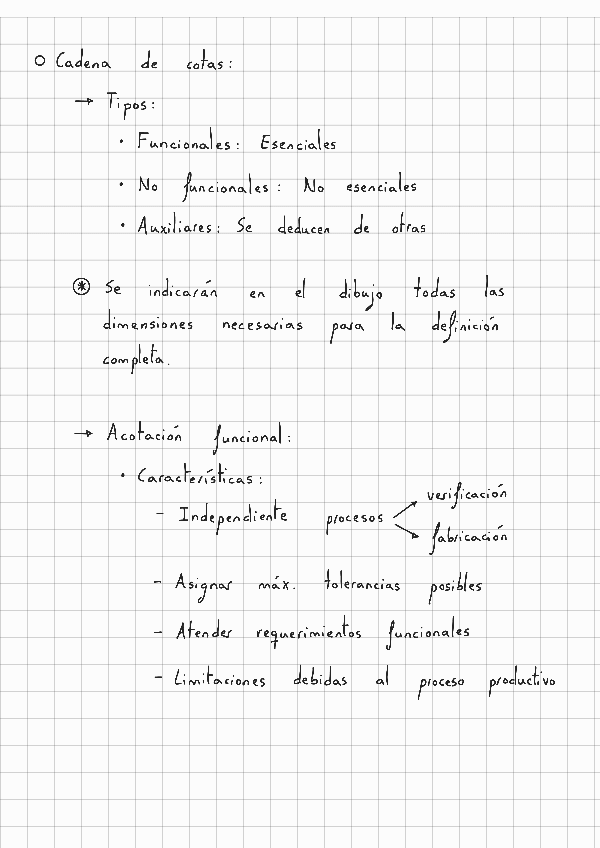 ○ Cadena de cotas:
→ Tipos:
• Funcionales: Esenciales
• No funcionales: No esenciales
• Auxiliares: Se deducen de otras
⊛ Se indicarán en el dibujo todas las
dimensiones necesarias para la definición
completa.
→ Acotación funcional:
• Características:
verificación
- Independiente procesos
fabricación
- Asignar máx. tolerancias posibles
- Atender requerimientos funcionales
- Limitaciones debidas al proceso productivo